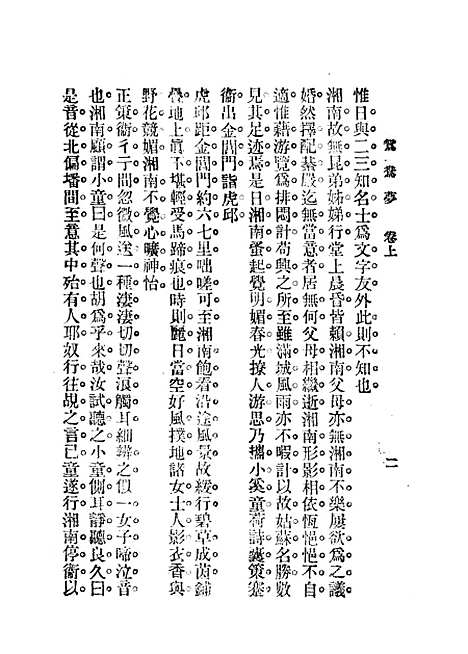 鴛鴦夢　卷上
二
惟日與二三知名士。爲文字友。外此則不知也。
湘南故無昆弟姊娣行。堂上晨昏。皆賴湘南。父母亦無湘南不樂。屢欲爲之議
婚。然擇配綦嚴。迄無當意者。居無何。父母相繼逝。湘南形影相依。恆悒悒不自
適。惟藉游覽爲排悶計。苟興之所至。雖滿城風雨。亦不暇計。以故姑蘇名勝。數
見其足迹焉。是日湘南蚤起。覺明媚春光。撩人游思。乃攜小奚童。荷詩囊。策蹇
衞。出金閶門。詣虎邱。
虎邱距金閶門約六七里。咄嗟可至。湘南飽看沿途風景。故緩行。碧草成茵。鋪
疊地上。眞不堪輕受馬蹄痕也。時則麗日當空。好風撲地。諸女士人影衣香。與
野花競媚。湘南不覺心曠神怡。
正策衞彳亍間。忽微風送一種淒淒切切聲。浪觸耳。細辨之。似一女子啼泣音
也。湘南顧謂小童曰。是何聲也。胡爲乎來哉。汝試聽之。小童側耳靜聽良久曰。
是音從北偏墦間至。意其中殆有人耶。奴行往覘之。言已。童遂行。湘南停衞以